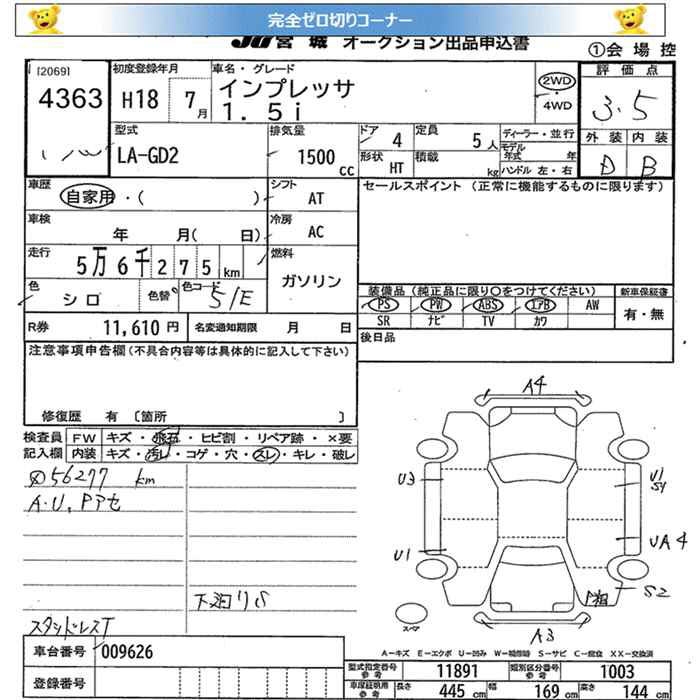 完全ゼロ切りコーナー
JU宮城 オークション出品申込書
①会場控
[2069]
4363
初度登録年月
H18 7月
車名・グレード
インプレッサ
1.5i
2WD
・
4WD
評価点
3.5
外装 内装
D B
型式
LA-GD2
排気量
1500cc
ドア 4
形状 HT
定員 5人
積載 kg
ディーラー・並行
モデル年式 年
ハンドル 左・右
車歴
自家用・( )
シフト
AT
セールスポイント(正常に機能するものに限ります)
車検
年 月( 日)
冷房
AC
走行
5万6千275km
燃料
ガソリン
色
シロ
色替
色コード
51E
装備品(純正品に限り○をつけてください)
新車保証書
PS PW ABS エアB AW
SR ナビ TV カワ
有・無
R券 11,610円
名変通知期限 月 日
後日品
注意事項申告欄(不具合内容等は具体的に記入して下さい)
修復歴 有 [箇所 ]
検査員
記入欄
FW キズ・飛石・ヒビ割・リペア跡・×要
内装 キズ・汚レ・コゲ・穴・スレ・キレ・破レ
56277 km
A・U,Pアセ
下廻りS
スタッドレスT
A4
U3
U1
S1
U1
UA4
S2
A3
スペア
A-キズ E-エクボ U-凹み W-補修跡 S-サビ C-腐食 XX-交換済
車台番号 009626
登録番号
型式指定番号
参考
11891
類別区分番号
参考
1003
車庫証明用
参考
長さ 445 cm
幅 169 cm
高さ 144 cm